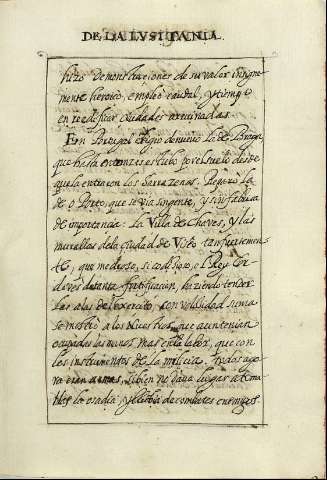 DE LA LVSITANIA.
hizo demonstraciones de su valor insigne
mente heroico, empleò caudal, y tiempo
en reedificar ciudades arruinadas.
En Portugal erigio de nuevo la de Braga
que hasta entonzes estubo por el suelo desde
que la entraron los Sarrazenos. Reparo la
de o Porto, que se via sin gente, y sin fabrica
de importancia. La Villa de Chaves, y las
murallas de la Ciudad de Viseo tan fuertemen-
te, que medroso, si codicioso, el Rey Cor-
doves de tanta fortificacion, haziendo tender
las alas del exercito, con velozidad
se mostrò a los nuestros, que aun tenian
ocupadas las manos, mas en la labor, que con
los instrumentos de la milicia. todos
eran armas, bien no dava lugar a
la osadia, y de combates enemigos